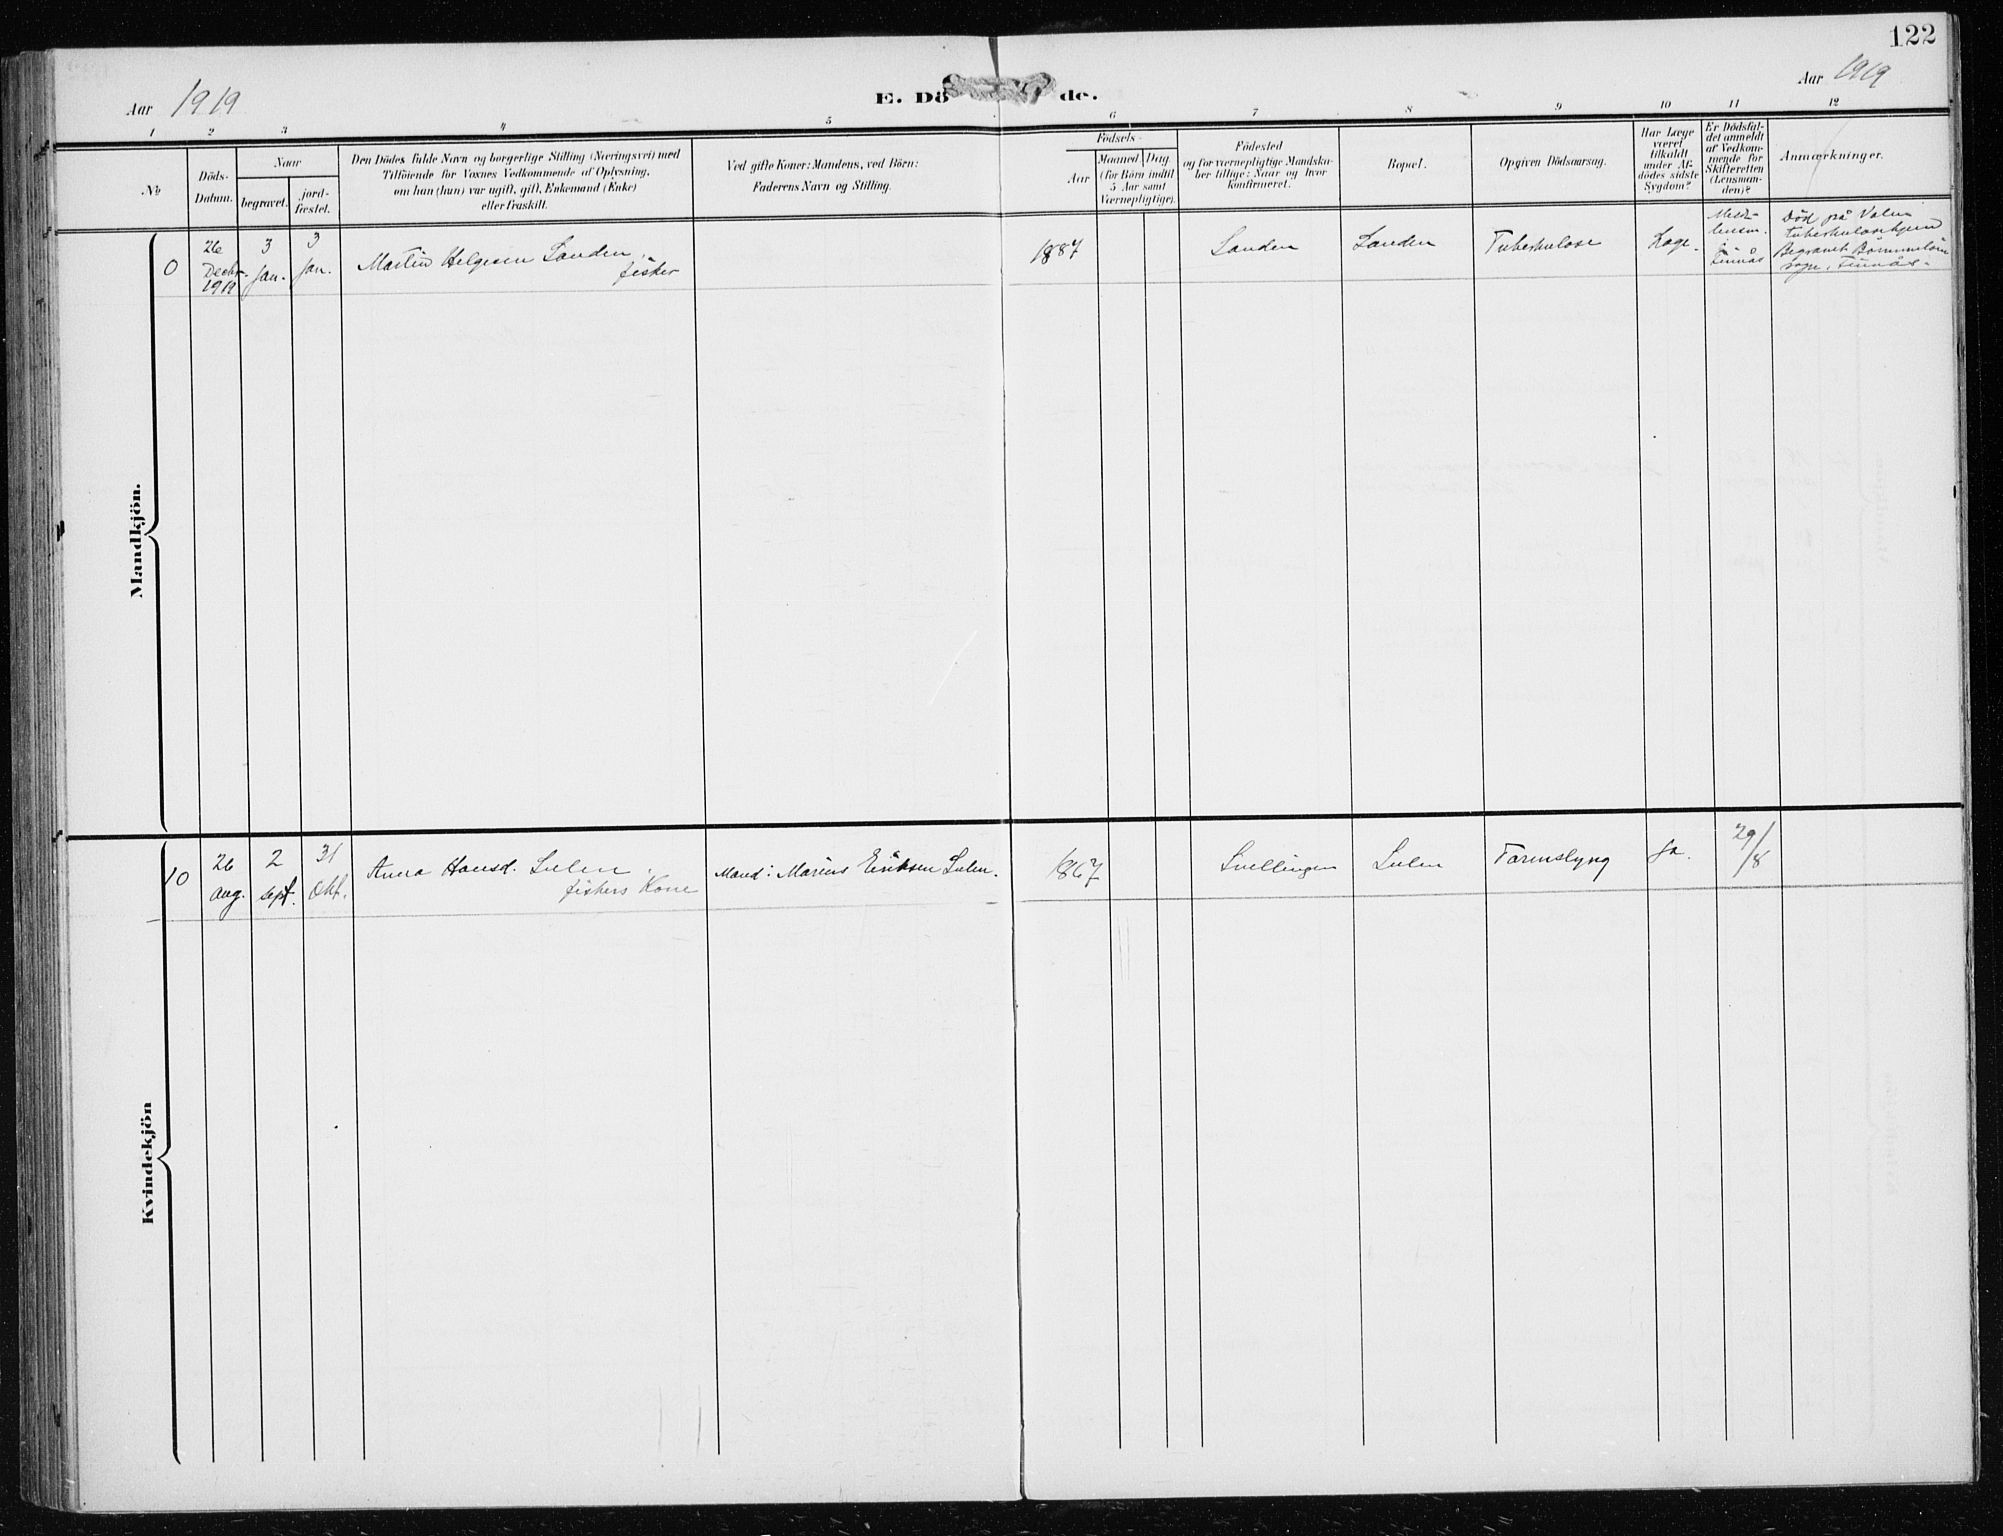 122
Aar 1919
E. Dö de.
Aar 1919
1 2 3 4 5 6 7 8 9 10 11 12
No
Döds-
Datum.
Naar
begravet.
jord-
fæstet.
Den Dödes fulde Navn og borgerlige Stilling (Næringsvei) med
Tilföiende for Voxnes Vedkommende af Oplysning,
om han (hun) var ugift, gift, Enkemand (Enke)
eller fraskilt.
Ved gifte Koner: Mandens, ved Börn:
Faderens Navn og Stilling.
Födsels-
Aar
Maaned Dag.
(for Börn indtil
5 Aar samt
Værnepligtige).
Födested
og for værnepligtige Mandska-
ber tillige: Naar og hvor
konfirmeret.
Bopæl.
Opgiven Dödsaarsag.
Har Læge
været
tilkaldt
under Af-
dödes sidste
Sygdom?
Er Dödsfal-
det anmeldt
af Vedkom-
mende for
Skifteretten
(Lensman-
den)?
Anmærkninger.
Mandkjön.
0
26
Decbr.
3
Jan.
3
Jan.
Martin Helgesen Sanden,
fisker
1887
Sanden
Sanden
Tuberkulose
Læge.
lensm.
i
Finnås
Død på Valen
tuberkulosehjem
Begravet Bømmeløen
sogn, Finnås.
Kvindekjön
10
26
aug.
2
sept.
31
Okt.
Anna Hansd. Sulen,
fiskers Kone
Mand: Marius Eriksen Sulen.
1867
Snellingen
Sulen
Tarmslyng
Ja.
29/8